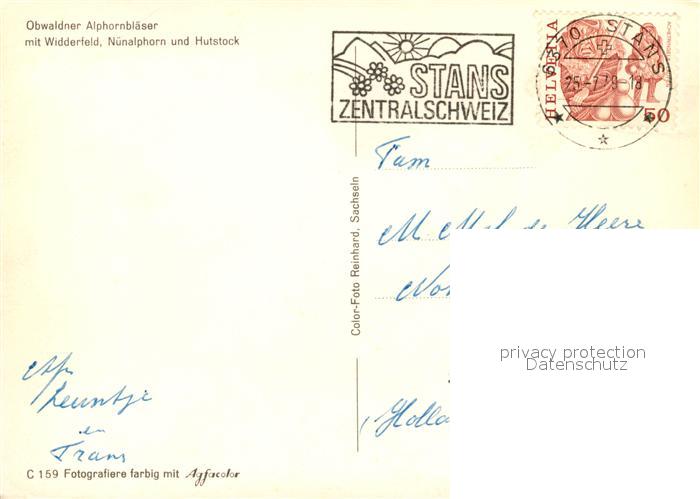 Obwaldner Alphornbläser
mit Widderfeld, Nünalphorn und Hutstock
STANS
ZENTRALSCHWEIZ
HELVETIA
50
6370 STANS
25.-7.79-18
Fam
Heere
Color-Foto Reinhard, Sachseln
privacy protection
Datenschutz
Holla
en
Frans
C 159 Fotografiere farbig mit Agfacolor